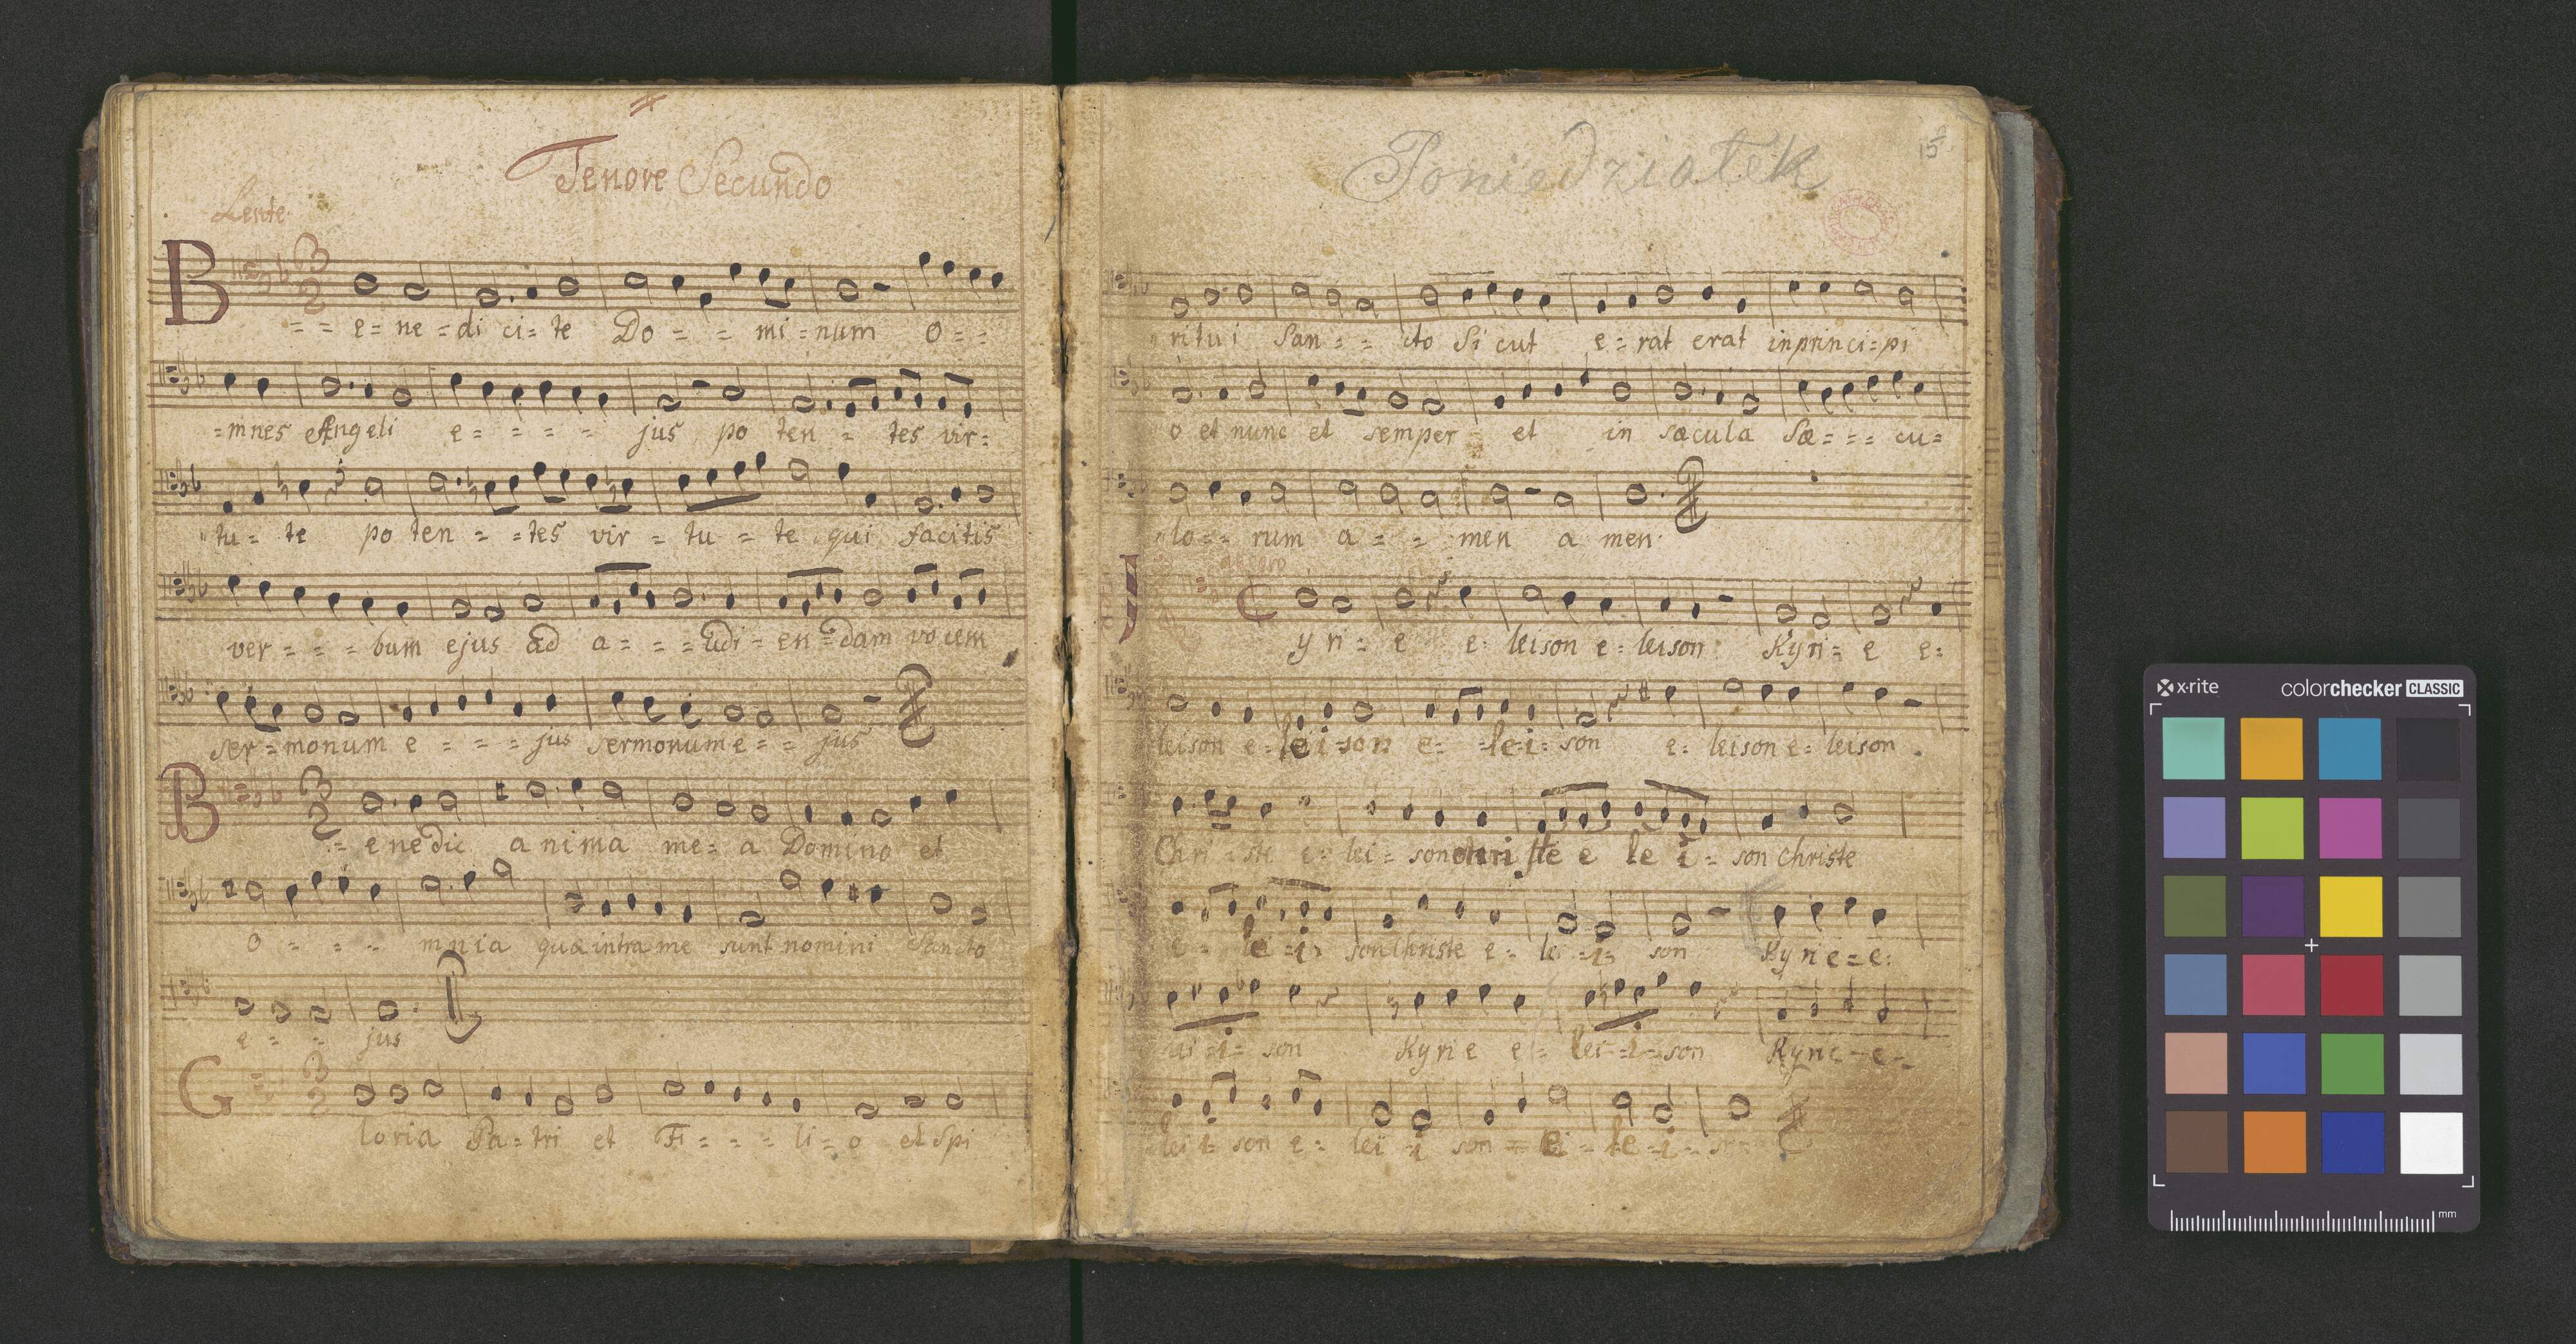 Tenore Secundo
Lente
B
3
2
= = e = ne = di ci = te Do = = mi = num o = =
= mnes Angeli e = = = = jus po ten = tes vir =
tu = te po ten = = tes vir = tu = te qui facitis
ver = = = bum ejus ad a = = = udi = en = dam vocem
ser = monum e = = = jus sermonum e = = jus
B
3
2
= enedic anima me = a Domino et
o = = = mnia quæ intra me sunt nomini Sancto
e = = jus
G
3
2
loria Pa = tri et Fi = = = li = o et Spi
Poniedziałek
15
ritui San = = cto Sicut e = rat erat in princi = pi
o et nunc et semper et in sæcula Sæ = = = cu =
lo = = rum a = = men a men
C
y ri = e e = leison e = leison Kyri = e e =
leison e = le i = son e = = le = i = son e = leison e = leison
Chri = ste e = lei = son christe e le i = son christe
e = le i = son Christe e = le = i = son Kyrie = e =
i = son Kyrie e = lei = i = son Kyrie = e =
lei i = son e = lei = i son = e = le = i =
x·rite
colorchecker CLASSIC
mm